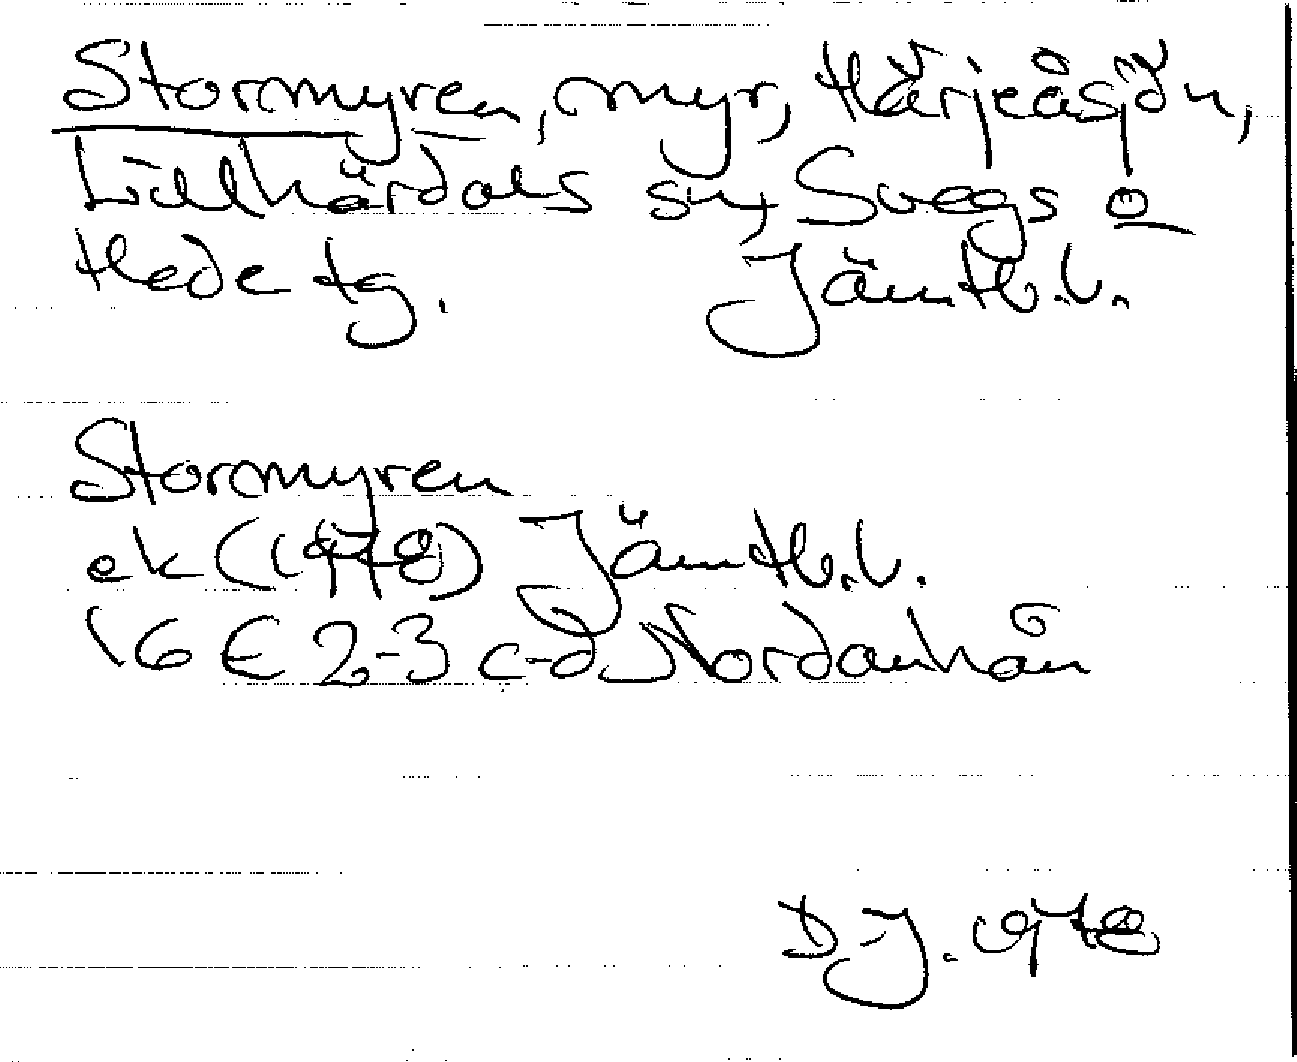 Stormyren, myr, Härjeåsjön,
Lillhärdals sn, Svegs o
Hede tg. Jämtl.l.
Stormyren
ek (1978) Jämtl.l.
16 E 2-3 c-d Nordanhån
D-J. 1978